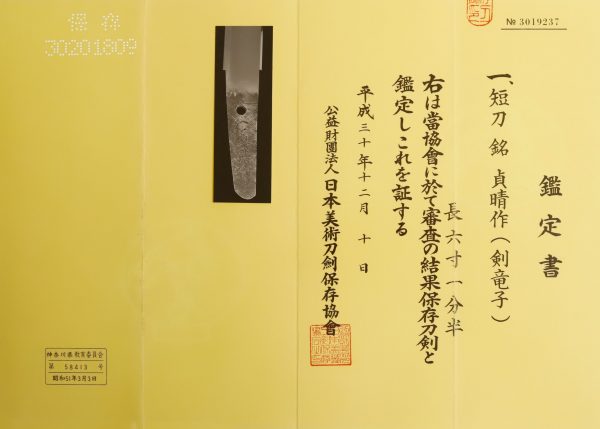 № 3019237
鑑定書
一、短刀 銘 貞晴作(剣竜子)
長六寸一分半
右は當協會に於て審査の結果保存刀剣と
鑑定しこれを証する
平成三十年十二月十日
公益財團法人日本美術刀劍保存協會
保存
30201809
神奈川県教育委員会
第 58413 号
昭和51年3月3日